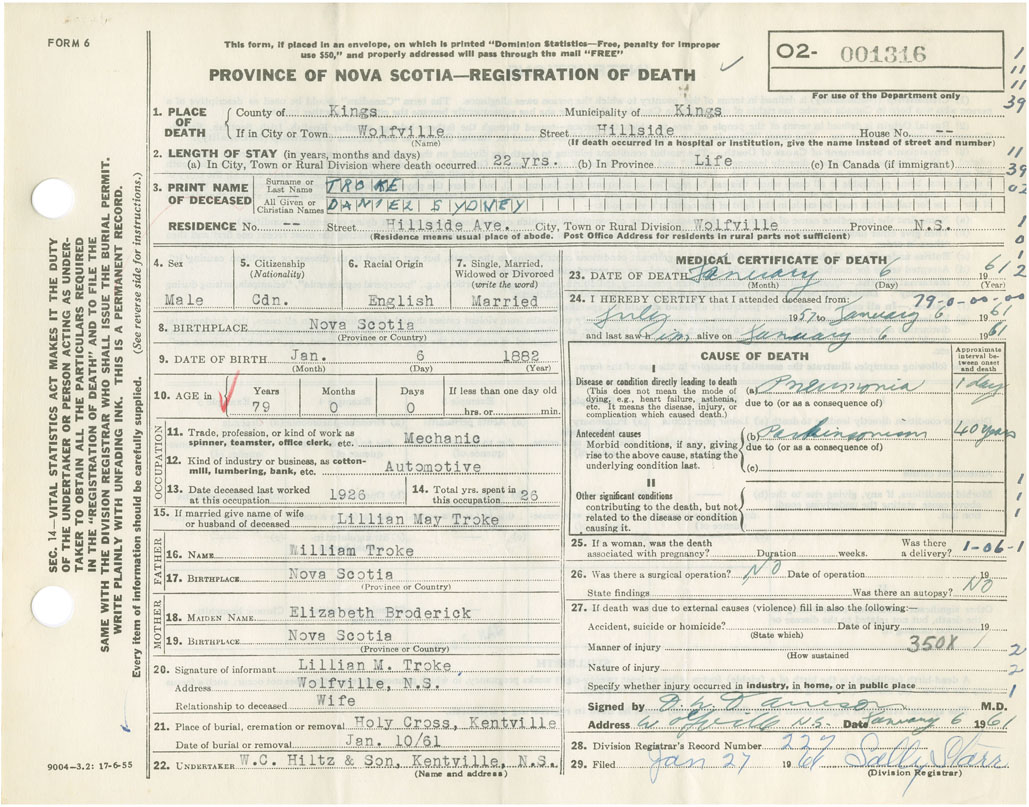 FORM 6
This form, if placed in an envelope, on which is printed "Dominion Statistics—Free, penalty for improper
use $50," and properly addressed will pass through the mail "FREE"
PROVINCE OF NOVA SCOTIA—REGISTRATION OF DEATH
O2- 001316
For use of the Department only
1. PLACE OF DEATH
County of Kings Municipality of Kings
If in City or Town Wolfville Street Hillside House No. --
(Name) (If death occurred in a hospital or institution, give the name instead of street and number)
2. LENGTH OF STAY (in years, months and days)
(a) In City, Town or Rural Division where death occurred 22 yrs. (b) In Province Life (c) In Canada (if immigrant)
3. PRINT NAME OF DECEASED
Surname or Last Name TROKE
All Given or Christian Names DANIEL SYDNEY
RESIDENCE No. -- Street Hillside Ave. City, Town or Rural Division Wolfville Province N.S.
(Residence means usual place of abode. Post Office Address for residents in rural parts not sufficient)
4. Sex
Male
5. Citizenship
(Nationality)
Cdn.
6. Racial Origin
English
7. Single, Married,
Widowed or Divorced
(write the word)
Married
8. BIRTHPLACE Nova Scotia
(Province or Country)
9. DATE OF BIRTH Jan. 6 1882
(Month) (Day) (Year)
10. AGE in
Years Months Days If less than one day old
79 0 0 hrs. or min.
OCCUPATION
11. Trade, profession, or kind of work as
spinner, teamster, office clerk, etc Mechanic
12. Kind of industry or business, as cotton-
mill, lumbering, bank, etc. Automotive
13. Date deceased last worked
at this occupation 1926
14. Total yrs. spent in
this occupation 26
15. If married give name of wife
or husband of deceased Lillian May Troke
FATHER
16. NAME William Troke
17. BIRTHPLACE Nova Scotia
(Province or Country)
MOTHER
18. MAIDEN NAME Elizabeth Broderick
19. BIRTHPLACE Nova Scotia
(Province or Country)
20. Signature of informant Lillian M. Troke
Address Wolfville, N.S.
Relationship to deceased Wife
21. Place of burial, cremation or removal Holy Cross, Kentville
Date of burial or removal Jan. 10/61
22. UNDERTAKER W.C. Hiltz & Son, Kentville, N.S.
(Name and address)
MEDICAL CERTIFICATE OF DEATH
23. DATE OF DEATH January 6 1961
(Month) (Day) (Year)
79-0-00-00
24. I HEREBY CERTIFY that I attended deceased from:
July 1957 to January 6 1961
and last saw him alive on January 6 1961
CAUSE OF DEATH
Approximate
interval be-
tween onset
and death
I
Disease or condition directly leading to death
(This does not mean the mode of
dying, e.g., heart failure, asthenia,
etc. It means the disease, injury, or
complication which caused death.)
(a) Pneumonia 1 day
due to (or as a consequence of)
Antecedent causes
Morbid conditions, if any, giving
rise to the above cause, stating the
underlying condition last.
(b) Parkinsonism 40 years
due to (or as a consequence of)
(c)
II
Other significant conditions
contributing to the death, but not
related to the disease or condition
causing it.
25. If a woman, was the death
associated with pregnancy? Duration weeks. Was there
a delivery? 1-06-1
26. Was there a surgical operation? NO Date of operation 19
State findings Was there an autopsy? NO
27. If death was due to external causes (violence) fill in also the following:—
Accident, suicide or homicide? Date of injury 19
(State which)
Manner of injury 350X
(How sustained
Nature of injury
Specify whether injury occurred in industry, in home, or in public place
Signed by M.D.
Address Wolfville N.S. Date January 6 1961
28. Division Registrar's Record Number 227
29. Filed Jan 27 1961 Sally Starr
(Division Registrar)
SEC. 14—VITAL STATISTICS ACT MAKES IT THE DUTY
OF THE UNDERTAKER OR PERSON ACTING AS UNDER-
TAKER TO OBTAIN ALL THE PARTICULARS REQUIRED
IN THE "REGISTRATION OF DEATH" AND TO FILE THE
SAME WITH THE DIVISION REGISTRAR WHO SHALL ISSUE THE BURIAL PERMIT.
WRITE PLAINLY WITH UNFADING INK. THIS IS A PERMANENT RECORD.
Every item of information should be carefully supplied. (See reverse side for instructions.)
9004-3.2: 17-6-55
1
11
11
39
11
39
02
1
0
1
2
1
1
1
2
2
1